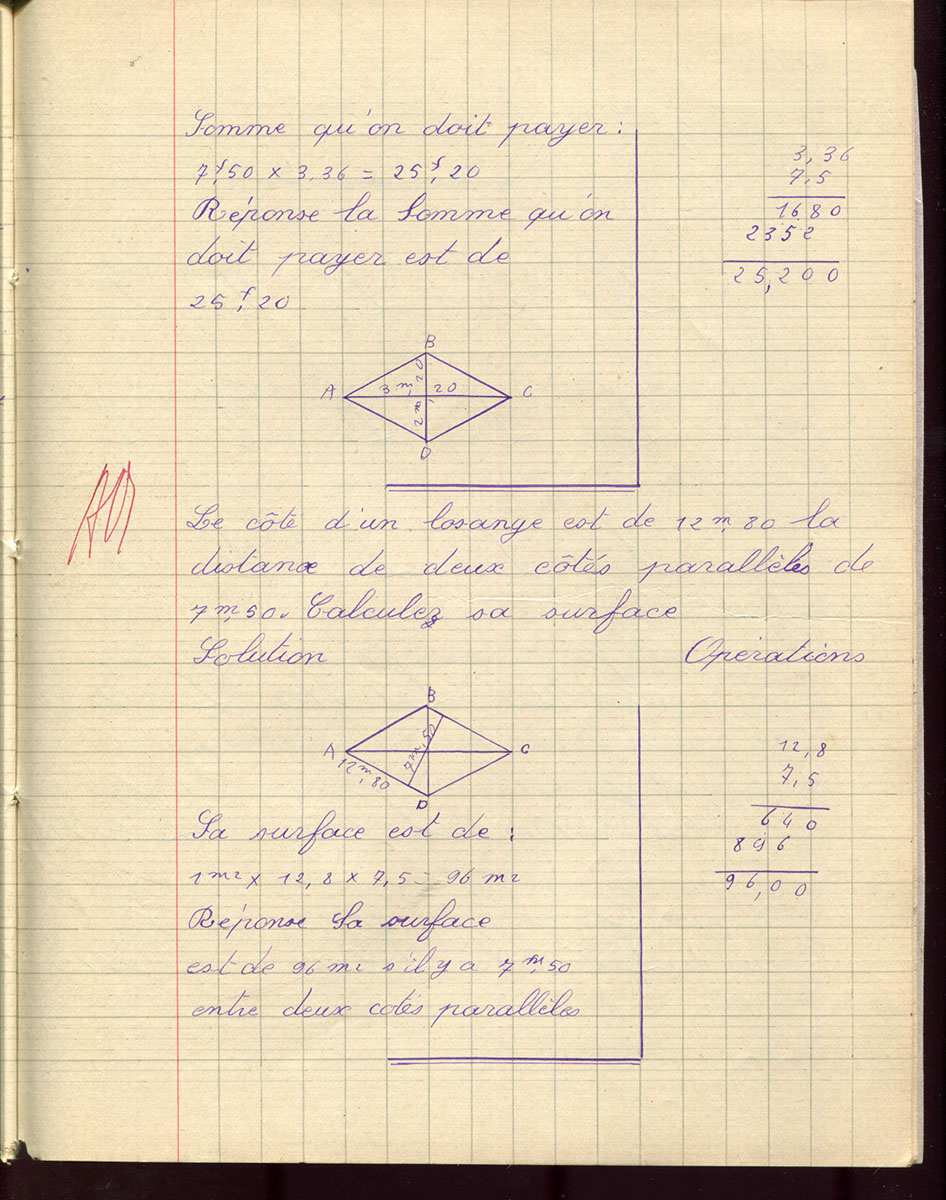 Somme qu'on doit payer :
7f,50 x 3,36 = 25f,20
Réponse la Somme qu'on
doit payer est de
25f,20
3,36
7,5
1680
2352
25,200
B
A
3m,20
C
2m,20
D
Le côté d'un losange est de 12m,80 la
distance de deux côtés parallèles de
7m,50. Calculez sa surface
Solution
Opérations
B
A
7m,50
C
12m,80
D
12,8
7,5
640
896
96,00
Sa surface est de :
1m2 x 12,8 x 7,5 = 96 m2
Réponse Sa surface
est de 96 m2 s'il y a 7m,50
entre deux cotés parallèles